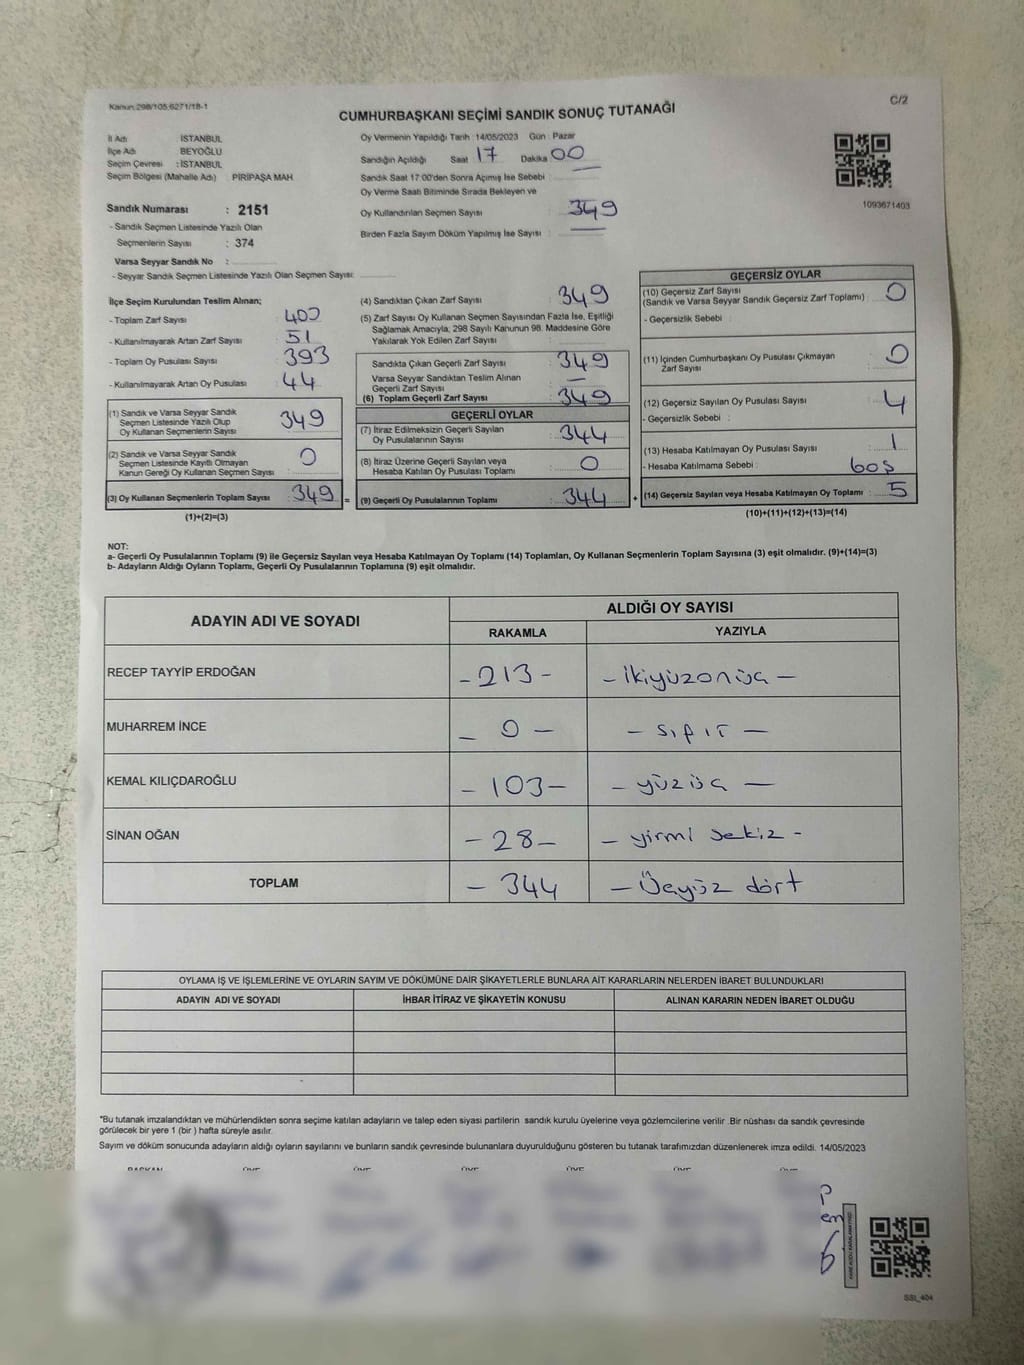 Kanun:298/105,6271/18-1
C/2
CUMHURBAŞKANI SEÇİMİ SANDIK SONUÇ TUTANAĞI
İl Adı : İSTANBUL
İlçe Adı : BEYOĞLU
Seçim Çevresi : İSTANBUL
Seçim Bölgesi (Mahalle Adı) : PİRİPAŞA MAH
Sandık Numarası : 2151
- Sandık Seçmen Listesinde Yazılı Olan
Seçmenlerin Sayısı : 374
Varsa Seyyar Sandık No :
- Seyyar Sandık Seçmen Listesinde Yazılı Olan Seçmen Sayısı:
Oy Vermenin Yapıldığı Tarih : 14/05/2023 Gün : Pazar
Sandığın Açıldığı Saat 17 Dakika 00
Sandık Saat 17:00'den Sonra Açımış İse Sebebi :
Oy Verme Saati Bitiminde Sırada Bekleyen ve
Oy Kullandırılan Seçmen Sayısı : 349
Birden Fazla Sayım Döküm Yapılmış İse Sayısı :
1093671403
İlçe Seçim Kurulundan Teslim Alınan;
- Toplam Zarf Sayısı : 400
- Kullanılmayarak Artan Zarf Sayısı : 51
- Toplam Oy Pusulası Sayısı : 393
- Kullanılmayarak Artan Oy Pusulası : 44
(1) Sandık ve Varsa Seyyar Sandık
Seçmen Listesinde Yazılı Olup
Oy Kullanan Seçmenlerin Sayısı : 349
(2) Sandık ve Varsa Seyyar Sandık
Seçmen Listesinde Kayıtlı Olmayan
Kanun Gereği Oy Kullanan Seçmen Sayısı : 0
(3) Oy Kullanan Seçmenlerin Toplam Sayısı : 349 =
(1)+(2)=(3)
(4) Sandıktan Çıkan Zarf Sayısı : 349
(5) Zarf Sayısı Oy Kullanan Seçmen Sayısından Fazla İse, Eşitliği
Sağlamak Amacıyla, 298 Sayılı Kanunun 98. Maddesine Göre
Yakılarak Yok Edilen Zarf Sayısı :
Sandıkta Çıkan Geçerli Zarf Sayısı : 349
Varsa Seyyar Sandıktan Teslim Alınan
Geçerli Zarf Sayısı : —
(6) Toplam Geçerli Zarf Sayısı : 349
GEÇERLİ OYLAR
(7) İtiraz Edilmeksizin Geçerli Sayılan
Oy Pusulalarının Sayısı : 344
(8) İtiraz Üzerine Geçerli Sayılan veya
Hesaba Katılan Oy Pusulası Toplamı : 0
(9) Geçerli Oy Pusulalarının Toplamı : 344 +
GEÇERSİZ OYLAR
(10) Geçersiz Zarf Sayısı
(Sandık ve Varsa Seyyar Sandık Geçersiz Zarf Toplamı) : 0
- Geçersizlik Sebebi :
(11) İçinden Cumhurbaşkanı Oy Pusulası Çıkmayan
Zarf Sayısı : 0
(12) Geçersiz Sayılan Oy Pusulası Sayısı : 4
- Geçersizlik Sebebi :
(13) Hesaba Katılmayan Oy Pusulası Sayısı : 1
- Hesaba Katılmama Sebebi : boş
(14) Geçersiz Sayılan veya Hesaba Katılmayan Oy Toplamı : 5
(10)+(11)+(12)+(13)=(14)
NOT:
a- Geçerli Oy Pusulalarının Toplamı (9) ile Geçersiz Sayılan veya Hesaba Katılmayan Oy Toplamı (14) Toplamları, Oy Kullanan Seçmenlerin Toplam Sayısına (3) eşit olmalıdır. (9)+(14)=(3)
b- Adayların Aldığı Oyların Toplamı, Geçerli Oy Pusulalarının Toplamına (9) eşit olmalıdır.
ADAYIN ADI VE SOYADI ALDIĞI OY SAYISI
RAKAMLA YAZIYLA
RECEP TAYYİP ERDOĞAN - 213 - - ikiyüzonüç -
MUHARREM İNCE - 0 - - sıfır -
KEMAL KILIÇDAROĞLU - 103 - - yüzüç -
SİNAN OĞAN - 28 - - yirmi sekiz -
TOPLAM - 344 - Üçyüz dört
OYLAMA İŞ VE İŞLEMLERİNE VE OYLARIN SAYIM VE DÖKÜMÜNE DAİR ŞİKAYETLERLE BUNLARA AİT KARARLARIN NELERDEN İBARET BULUNDUKLARI
ADAYIN ADI VE SOYADI İHBAR İTİRAZ VE ŞİKAYETİN KONUSU ALINAN KARARIN NEDEN İBARET OLDUĞU
*Bu tutanak imzalandıktan ve mühürlendikten sonra seçime katılan adayların ve talep eden siyasi partilerin sandık kurulu üyelerine veya gözlemcilerine verilir. Bir nüshası da sandık çevresinde
görülecek bir yere 1 (bir ) hafta süreyle asılır.
Sayım ve döküm sonucunda adayların aldığı oyların sayılarını ve bunların sandık çevresinde bulunanlara duyurulduğunu gösteren bu tutanak tarafımızdan düzenlenerek imza edildi. 14/05/2023
BAŞKAN ÜYE ÜYE ÜYE ÜYE ÜYE ÜYE
SSI_404